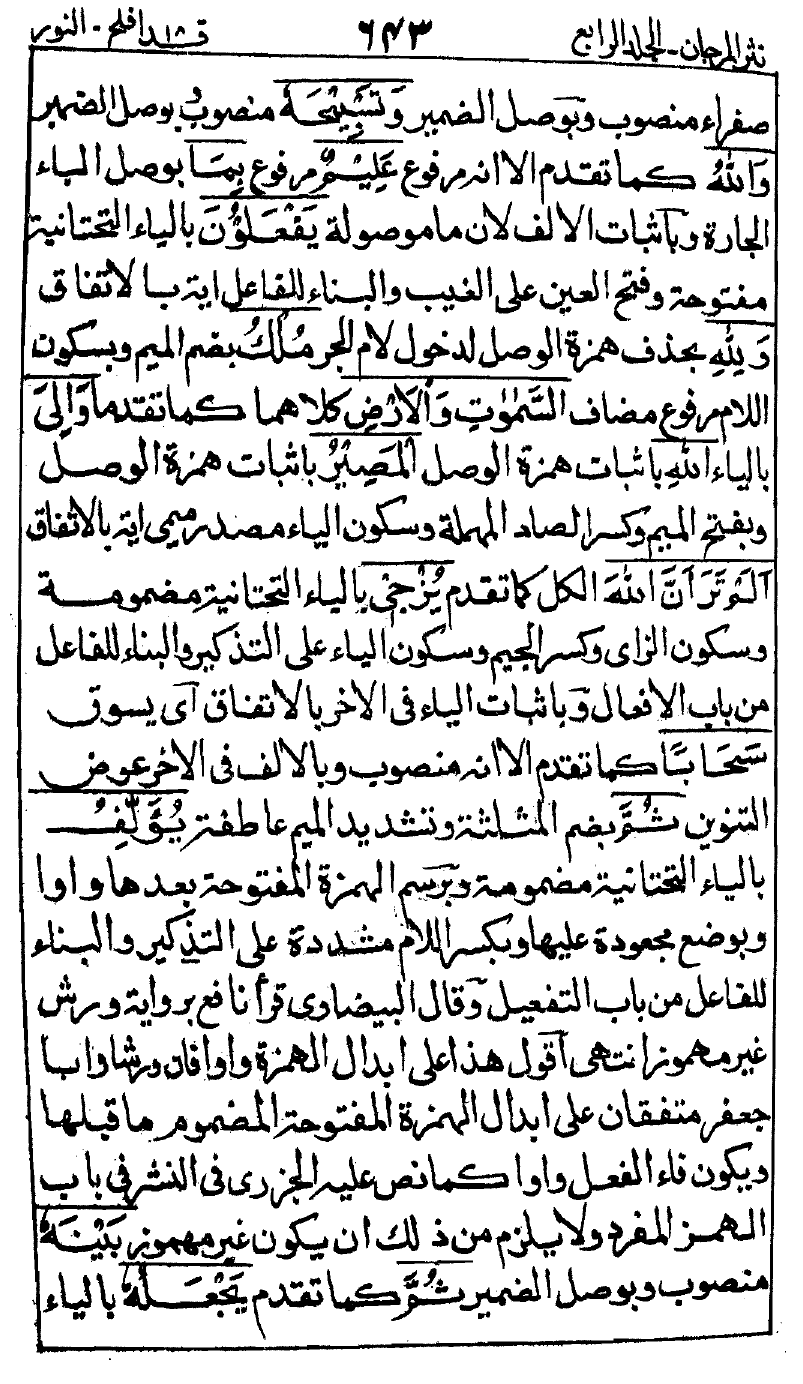 نثر المرجان - الجلد الرابع ٦٤٣ قد افلح ١٨ - النور
صفراء منصوب وبوصل الضمير وَتَسْبِيْحَهٗ منصوب بوصل الضمير
وَاللّٰهُ كما تقدم الا انه مرفوع عَلِيْمٌ مرفوع بِمَا بوصل الباء
الجارة وباثبات الالف لان ما موصولة يَفْعَلُوْنَ بالياء التحتانية
مفتوحة وفتح العين على الغيب والبناء للفاعل اية بالاتفاق
وَلِلّٰهِ بحذف همزة الوصل لدخول لام الجر مُلْكُ بضم الميم وبسكون
اللام مرفوع مضاف السَّمٰوٰتِ وَالْاَرْضِ كلاهما كما تقدما وَاِلَى
بالياء اللّٰهِ باثبات همزة الوصل الْمَصِيْرُ باثبات همزة الوصل
وبفتح الميم وكسر الصاد المهملة وسكون الياء مصدر ميمى اية بالاتفاق
اَلَمْ تَرَ اَنَّ اللّٰهَ الكل كما تقدم يُزْجِىْ بالياء التحتانية مضمومة
وسكون الزاى وكسر الجيم وسكون الياء على التذكير والبناء للفاعل
من باب الافعال وباثبات الياء فى الاخر بالاتفاق اى يسوق
سَحَابًا كما تقدم الا انه منصوب وبالالف فى الاخر عوض
التنوين ثُمَّ بضم المثلثة وتشديد الميم عاطفة يُؤَلِّفُ
بالياء التحتانية مضمومة وبرسم الهمزة المفتوحة بعدها واوا
وبوضع مجعودة عليها وبكسر اللام مشددة على التذكير والبناء
للفاعل من باب التفعيل وقال البيضاوى قرأ نافع برواية ورش
غير مهموز انتهى اقول هذا على ابدال الهمزة واوا فان ورشا وابا
جعفر متفقان على ابدال الهمزة المفتوحة المضموم ما قبلها
ويكون فاء الفعل واوا كما نص عليه الجزرى فى النشر فى باب
الهمز المفرد ولا يلزم من ذلك ان يكون غير مهموز بَيْنَهٗ
منصوب وبوصل الضمير ثُمَّ كما تقدم يَجْعَلُهٗ بالياء